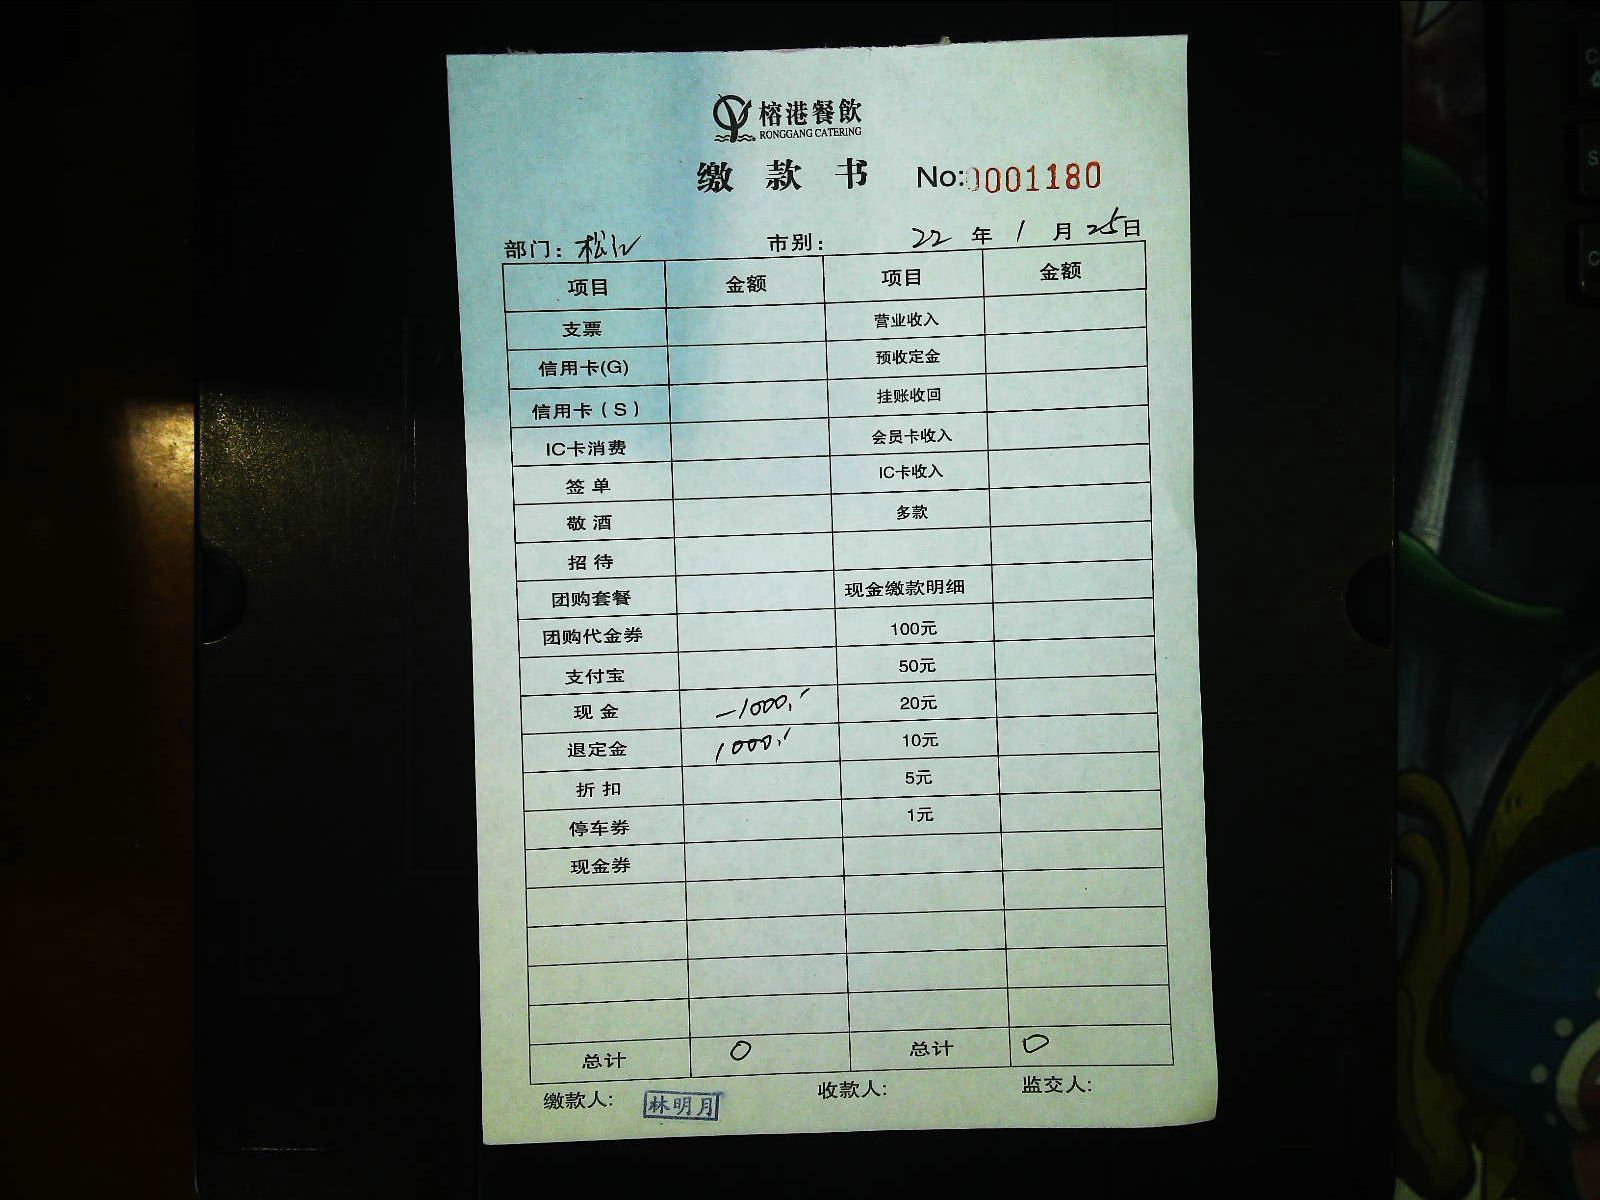 榕港餐飲
RONGGANG CATERING
缴款书 No:0001180
部门: 松江 市别: 22 年 1 月 25 日
项目 金额 项目 金额
支票 营业收入
信用卡(G) 预收定金
信用卡(S) 挂账收回
IC卡消费 会员卡收入
签单 IC卡收入
敬酒 多款
招待
团购套餐 现金缴款明细
团购代金券 100元
支付宝 50元
现金 -1000.- 20元
退定金 1000.- 10元
折扣 5元
停车券 1元
现金券
总计 0 总计 0
缴款人: 林明月 收款人: 监交人: